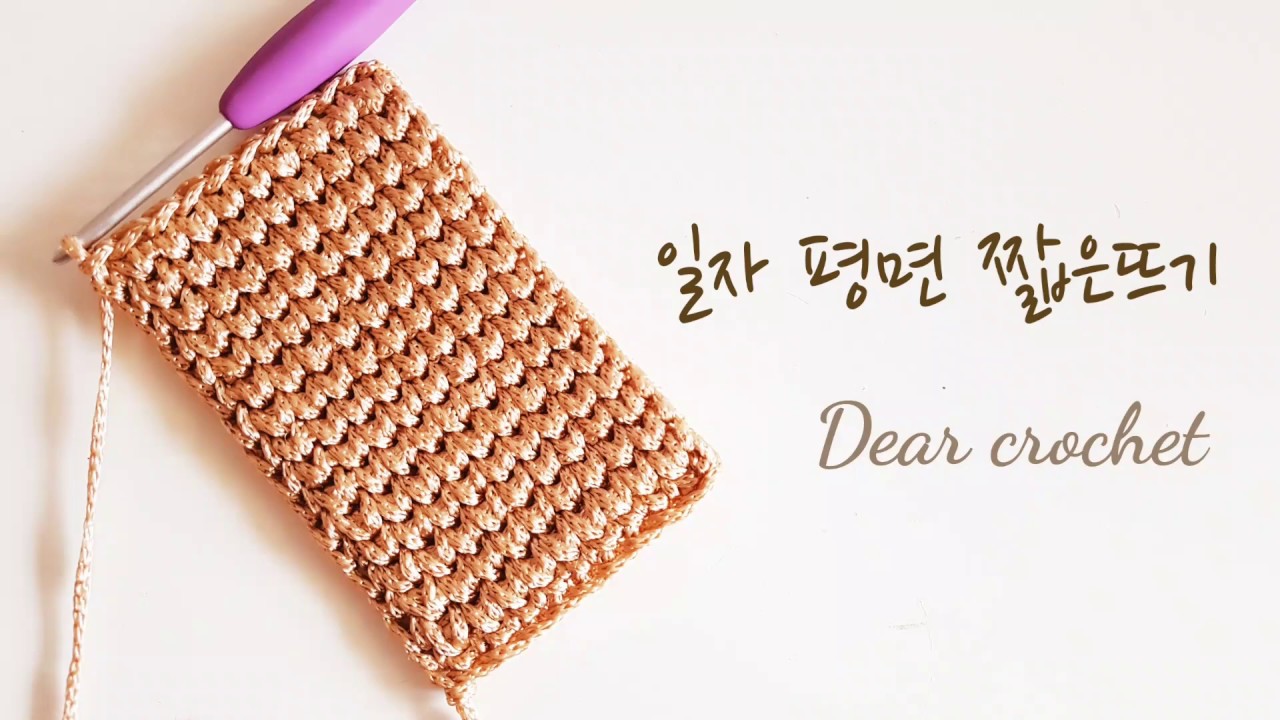 일자 평면 짧은뜨기
Dear crochet